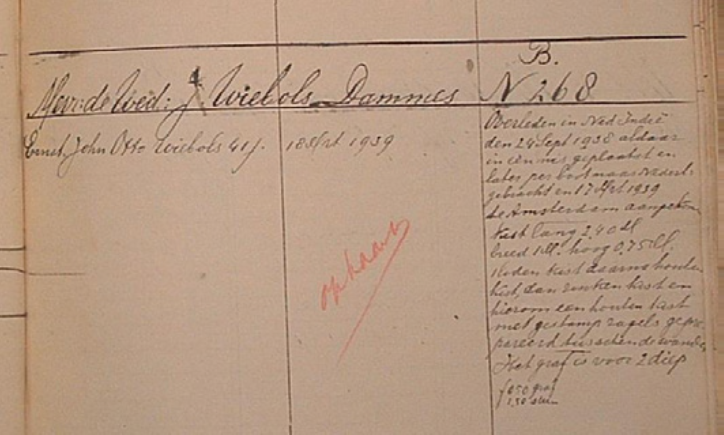 B.
Mevr: de Wed: J. Wiebols Dammes N 268
Ernst, John Otto Wiebols 41 j. 18 1939
Overleden in Ned Indië
den 24 Sept 1938 aldaar
in een nis geplaatst en
later per boot naar Nederl.
gebracht en 17 1939
te Amsterdam
Kist lang 2.40 M
breed 1 M. hoog 0.75 M.
looden kist daarna houten
kist, dan zinken kist en
hierom een houten kist
met zagels
tusschen de wanden
Het graf is voor 2 diep
op kaart